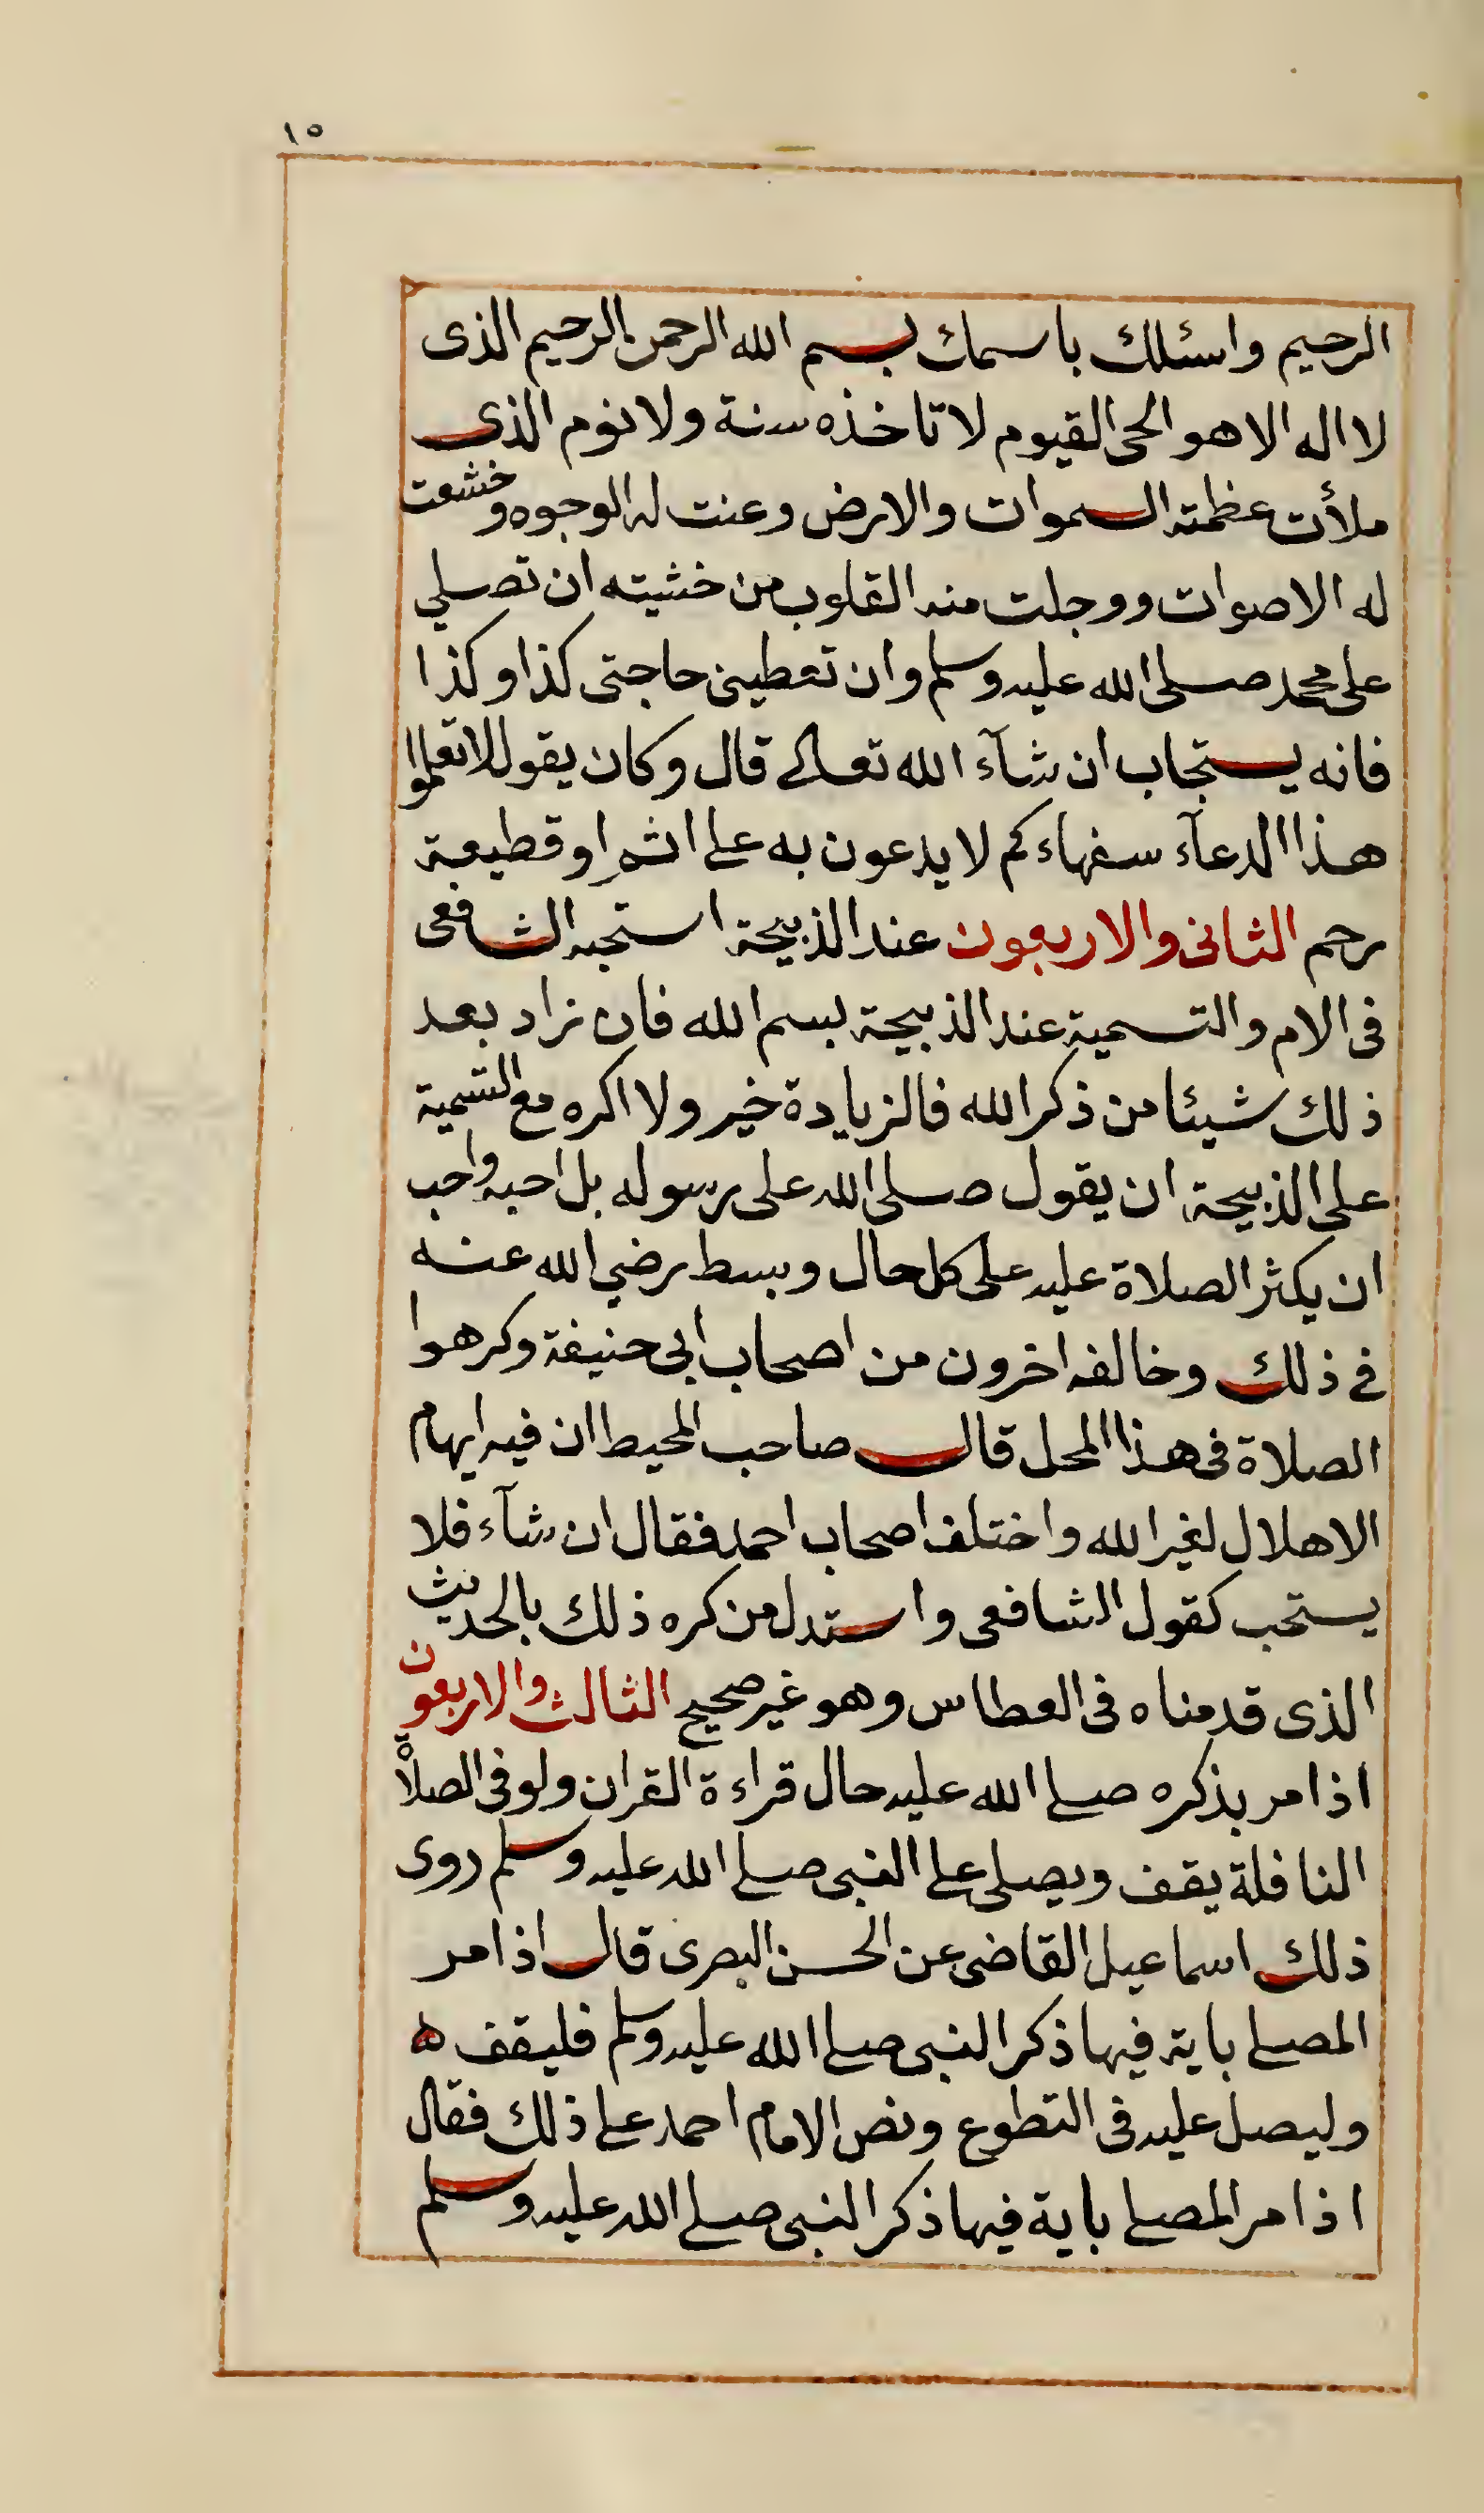 ١٥
الرحيم واسئلك باسمك بسم الله الرحمن الرحيم الذى
لا اله الا هو الحى القيوم لا تاخذه سنة ولا نوم الذى
ملأت عظمته السموات والارض وعنت له الوجوه وخشعت
له الاصوات ووجلت منه القلوب من خشيته ان تصلي
على محمد صلى الله عليه وسلم وان تعطينى حاجتى كذا وكذا
فانه يستجاب ان شآء الله تعالى قال وكان يقول لا تعلموا
هذا الدعآء سفهاءكم لا يدعون به على اثم او قطيعة
رحم الثانى والاربعون عند الذبيحة استحبه الشافعى
فى الام والتسمية عند الذبيحة بسم الله فان زاد بعد
ذلك شيئا من ذكر الله فالزيادة خير ولا اكره مع التسمية
على الذبيحة ان يقول صلى الله على رسوله بل احبه واحب
ان يكثر الصلاة عليه على كل حال وبسط رضي الله عنه
في ذلك وخالفه اخرون من اصحاب ابى حنيفة وكرهوا
الصلاة فى هذا المحل قال صاحب المحيط ان فيه ايهام
الاهلال لغير الله واختلف اصحاب احمد فقال ان شآء فلا
يستحب كقول الشافعى واستدل من كره ذلك بالحديث
الذى قدمناه فى العطاس وهو غير صحيح الثالث والاربعون
اذا مر بذكره صلى الله عليه حال قراءة القران ولو فى الصلاة
النافلة يقف ويصلى على النبى صلى الله عليه وسلم روى
ذلك اسماعيل القاضى عن الحسن البصرى قال اذا مر
المصلى باية فيها ذكر النبى صلى الله عليه وسلم فليقف ه
وليصل عليه فى التطوع ونص الامام احمد على ذلك فقال
اذا مر المصلى باية فيها ذكر النبى صلى الله عليه وسلم